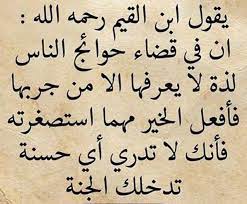 يقول ابن القيم رحمه الله :
ان في قضاء حوائج الناس
لذة لا يعرفها الا من جربها
فأفعل الخير مهما استصغرته
فأنك لا تدري أي حسنة
تدخلك الجنة